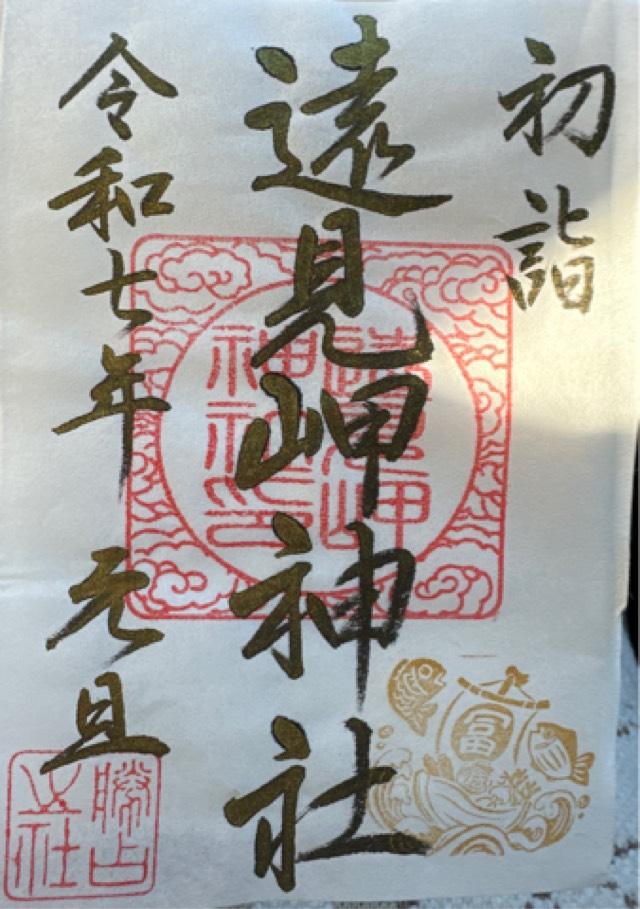 初詣
遠見岬神社
令和七年 元旦
遠見岬
神社印
冨